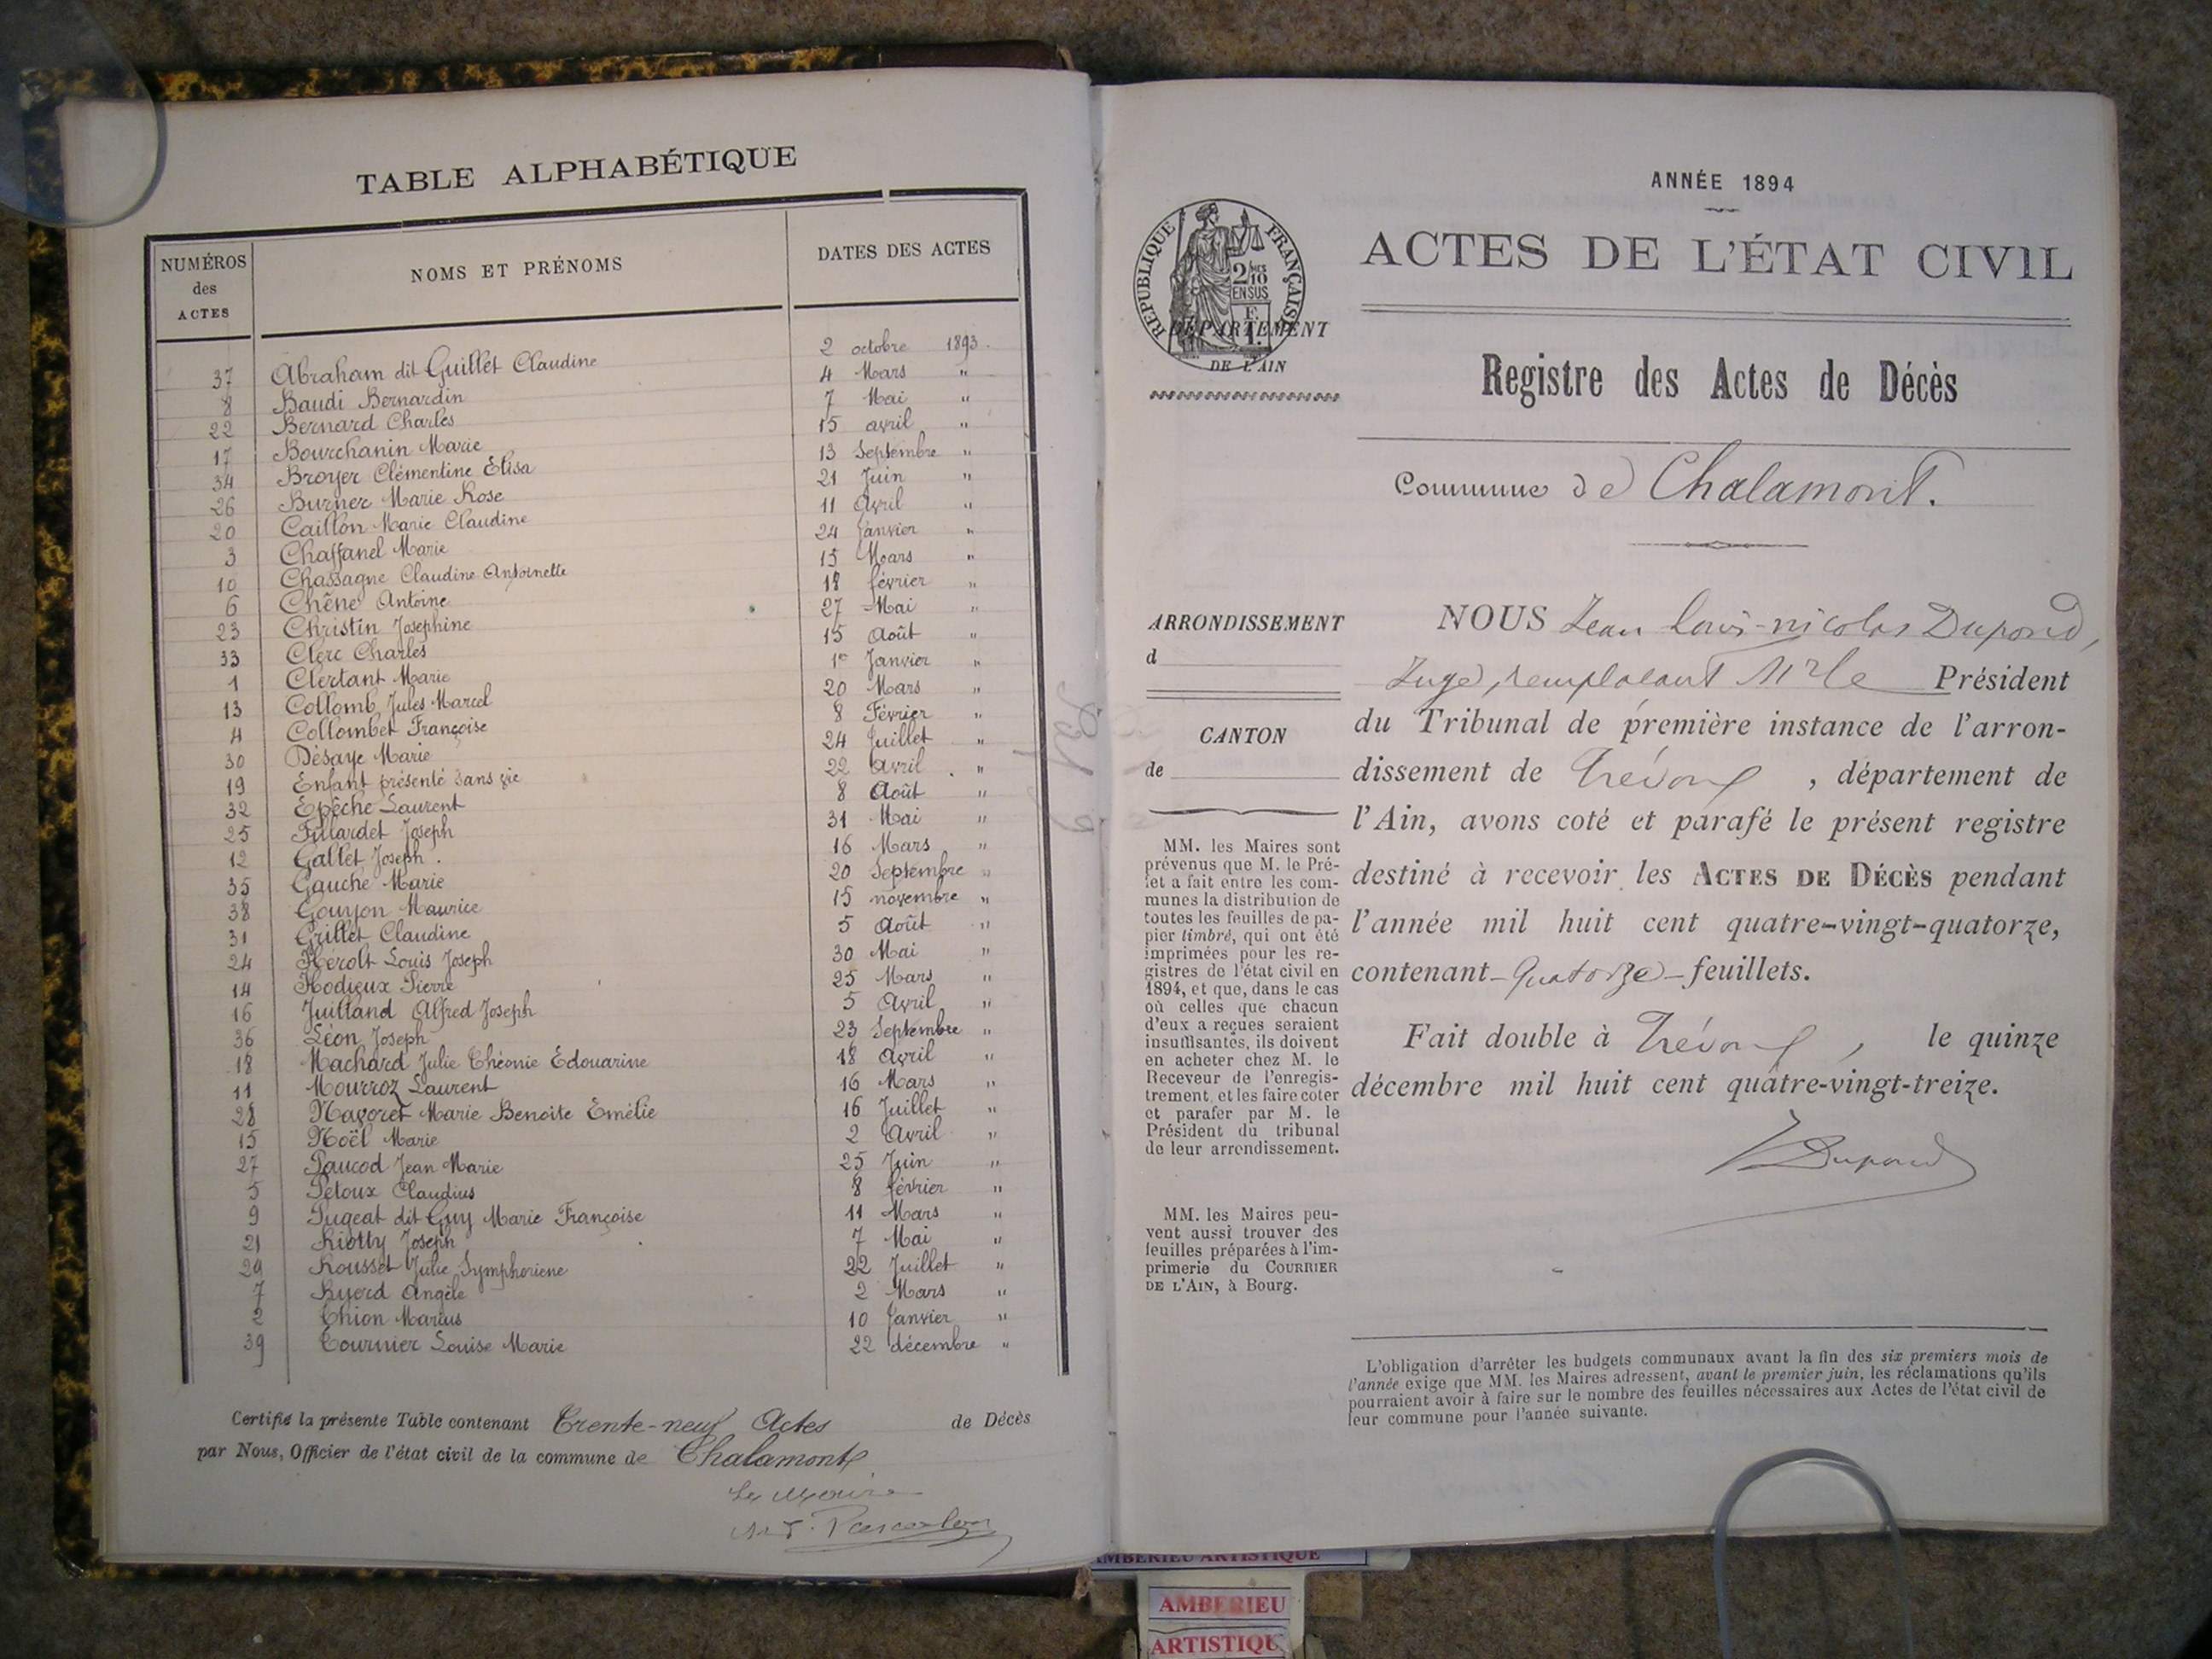 TABLE ALPHABÉTIQUE
NUMÉROS des ACTES
NOMS ET PRÉNOMS
DATES DES ACTES
37 Abraham dit Guillet Claudine 2 octobre 1893.
8 Baudi Bernardin 4 Mars "
22 Bernard Charles 7 Mai "
17 Bourchanin Marie 15 avril "
34 Broyer Clémentine Élisa 13 Septembre "
26 Burner Marie Rose 21 Juin "
20 Caillon Marie Claudine 11 Avril "
3 Chaffanel Marie 24 Janvier "
10 Chassagne Claudine Antoinette 15 Mars "
6 Chêne Antoine 18 février "
23 Christin Joséphine 27 Mai "
33 Clerc Charles 15 Août "
1 Clertant Marie 1er Janvier "
13 Collomb Jules Marcel 20 Mars "
4 Collombet Françoise 8 Février "
30 Désaye Marie 24 Juillet "
19 Enfant présenté sans vie 22 avril "
32 Epêche Laurent 8 Août "
25 Fillardet Joseph 31 Mai "
12 Gallet Joseph. 16 Mars "
35 Gauche Marie 20 Septembre "
38 Gouyon Maurice 15 novembre "
31 Grillet Claudine 5 Août "
24 Hérolt Louis Joseph 30 Mai "
14 Hodieux Pierre 25 Mars "
16 Juilland Alfred Joseph 5 Avril "
36 Léon Joseph 23 Septembre "
18 Machard Julie Théonie Édouarine 18 avril "
11 Mourroz Laurent 16 Mars "
28 Nagoret Marie Benoite Émélie 16 Juillet "
15 Noël Marie 2 Avril "
27 Paucod Jean Marie 25 Juin "
5 Petoux Claudius 8 février "
9 Pugeat dit Guy Marie Françoise 11 Mars "
21 Riotty Joseph 7 Mai "
29 Rousset Julie Symphoriene 22 Juillet "
7 Ruyord Angèle 2 Mars "
2 Thion Marius 10 Janvier "
39 Tournier Louise Marie 22 décembre "
Certifié la présente Table contenant Trente-neuf Actes de Décès
par Nous, Officier de l'état civil de la commune de Chalamont
Le Maire
ANNÉE 1894
RÉPUBLIQUE FRANÇAISE
2/10
EN SUS
ACTES DE L'ÉTAT CIVIL
DÉPARTEMENT
DE L'AIN
Registre des Actes de Décès
Commune de Chalamont.
ARRONDISSEMENT
d
CANTON
de
MM. les Maires sont
prévenus que M. le Pré-
fet a fait entre les com-
munes la distribution de
toutes les feuilles de pa-
pier timbré, qui ont été
imprimées pour les re-
gistres de l'état civil en
1894, et que, dans le cas
où celles que chacun
d'eux a reçues seraient
insuffisantes, ils doivent
en acheter chez M. le
Receveur de l'enregis-
trement, et les faire coter
et parafer par M. le
Président du tribunal
de leur arrondissement.
MM. les Maires peu-
vent aussi trouver des
feuilles préparées à l'im-
primerie du COURRIER
DE L'AIN, à Bourg.
NOUS Jean Louis-nicolas Dupond,
Juge, remplaçant Mr le Président
du Tribunal de première instance de l'arron-
dissement de Trévoux, département de
l'Ain, avons coté et parafé le présent registre
destiné à recevoir les ACTES DE DÉCÈS pendant
l'année mil huit cent quatre-vingt-quatorze,
contenant - Quatorze - feuillets.
Fait double à Trévoux, le quinze
décembre mil huit cent quatre-vingt-treize.
Dupond
L'obligation d'arrêter les budgets communaux avant la fin des six premiers mois de
l'année exige que MM. les Maires adressent, avant le premier juin, les réclamations qu'ils
pourraient avoir à faire sur le nombre des feuilles nécessaires aux Actes de l'état civil de
leur commune pour l'année suivante.
AMBERIEU ARTISTIQUE
AMBERIEU
ARTISTIQU